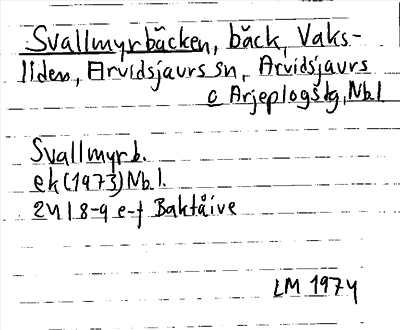 Svallmyrbäcken, bäck, Vaks-
liden, Arvidsjaurs sn, Arvidsjaurs
o Arjeplogs tg, Nb.l
Svallmyrb.
ek (1973) Nb.l.
24I 8-9 e-f Baktåive
LM 1974